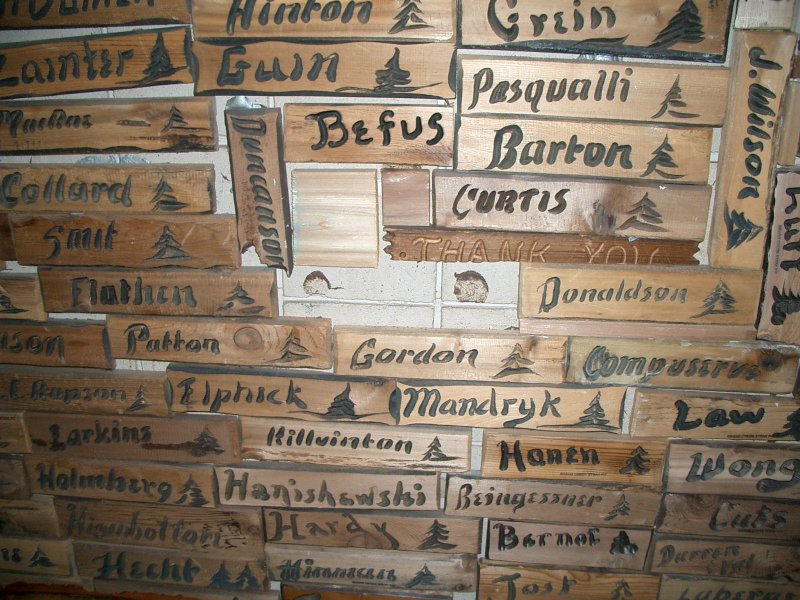 Hinton
Grein
Lainter
Guin
Pasqualli
J. Wilson
MacRae
Duncanson
Befus
Barton
Collard
Curtis
Smit
THANK YOU
Flathen
Donaldson
Patton
Gordon
Compuserve
Elphick
Mandryk
Law
Larkins
Killvinton
Hanen
Wong
Holmberg
Hanishewski
Beingessner
Cuts
Higinbottom
Hardy
Bernof
Darren
Hecht
Jost